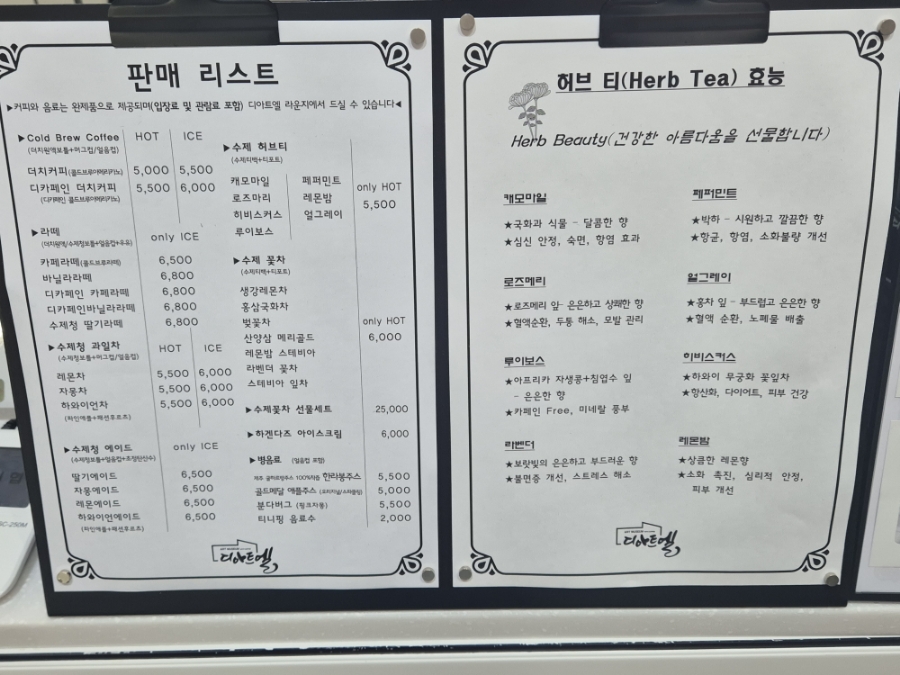 판매 리스트
▶커피와 음료는 완제품으로 제공되며(입장료 및 관람료 포함) 디아트엘 라운지에서 드실 수 있습니다◀
▶Cold Brew Coffee HOT ICE
(더치원액보틀+머그컵/얼음컵)
더치커피(콜드브루아메리카노) 5,000 5,500
디카페인 더치커피 5,500 6,000
(디카페인 콜드브루아메리카노)
▶라떼 only ICE
(더치원액/수제청보틀+얼음컵+우유)
카페라떼(콜드브루라떼) 6,500
바닐라라떼 6,800
디카페인 카페라떼 6,800
디카페인바닐라라떼 6,800
수제청 딸기라떼 6,800
▶수제청 과일차 HOT ICE
(수제청보틀+머그컵/얼음컵)
레몬차 5,500 6,000
자몽차 5,500 6,000
하와이언차 5,500 6,000
(파인애플+패션후르츠)
▶수제청 에이드 only ICE
(수제청보틀+얼음컵+초정탄산수)
딸기에이드 6,500
자몽에이드 6,500
레몬에이드 6,500
하와이언에이드 6,500
(파인애플+패션후르츠)
▶수제 허브티
(수제티백+티포트)
캐모마일 페퍼민트 only HOT
로즈마리 레몬밤 5,500
히비스커스 얼그레이
루이보스
▶수제 꽃차
(수제티백+티포트)
생강레몬차
홍삼국화차
벚꽃차 only HOT
산양삼 메리골드 6,000
레몬밤 스테비아
라벤더 꽃차
스테비아 잎차
▶수제꽃차 선물세트 25,000
▶하겐다즈 아이스크림 6,000
▶병음료 (얼음컵 포함)
제주 감귤트랑주스 100%착즙 한라봉주스 5,500
골드메달 애플주스 (오리지널/스파클링) 5,000
분다버그 (핑크자몽) 5,500
티니핑 음료수 2,000
디아트엘
허브 티(Herb Tea) 효능
Herb Beauty(건강한 아름다움을 선물합니다)
캐모마일
★국화과 식물 - 달콤한 향
★심신 안정, 숙면, 항염 효과
페퍼민트
★박하 - 시원하고 깔끔한 향
★항균, 항염, 소화불량 개선
로즈메리
★로즈메리 잎- 은은하고 상쾌한 향
★혈액순환, 두통 해소, 모발 관리
얼그레이
★홍차 잎 - 부드럽고 은은한 향
★혈액 순환, 노폐물 배출
루이보스
★아프리카 자생콩+침엽수 잎
- 은은한 향
★카페인 Free, 미네랄 풍부
히비스커스
★하와이 무궁화 꽃잎차
★항산화, 다이어트, 피부 건강
라벤더
★보랏빛의 은은하고 부드러운 향
★불면증 개선, 스트레스 해소
레몬밤
★상큼한 레몬향
★소화 촉진, 심리적 안정,
피부 개선
디아트엘